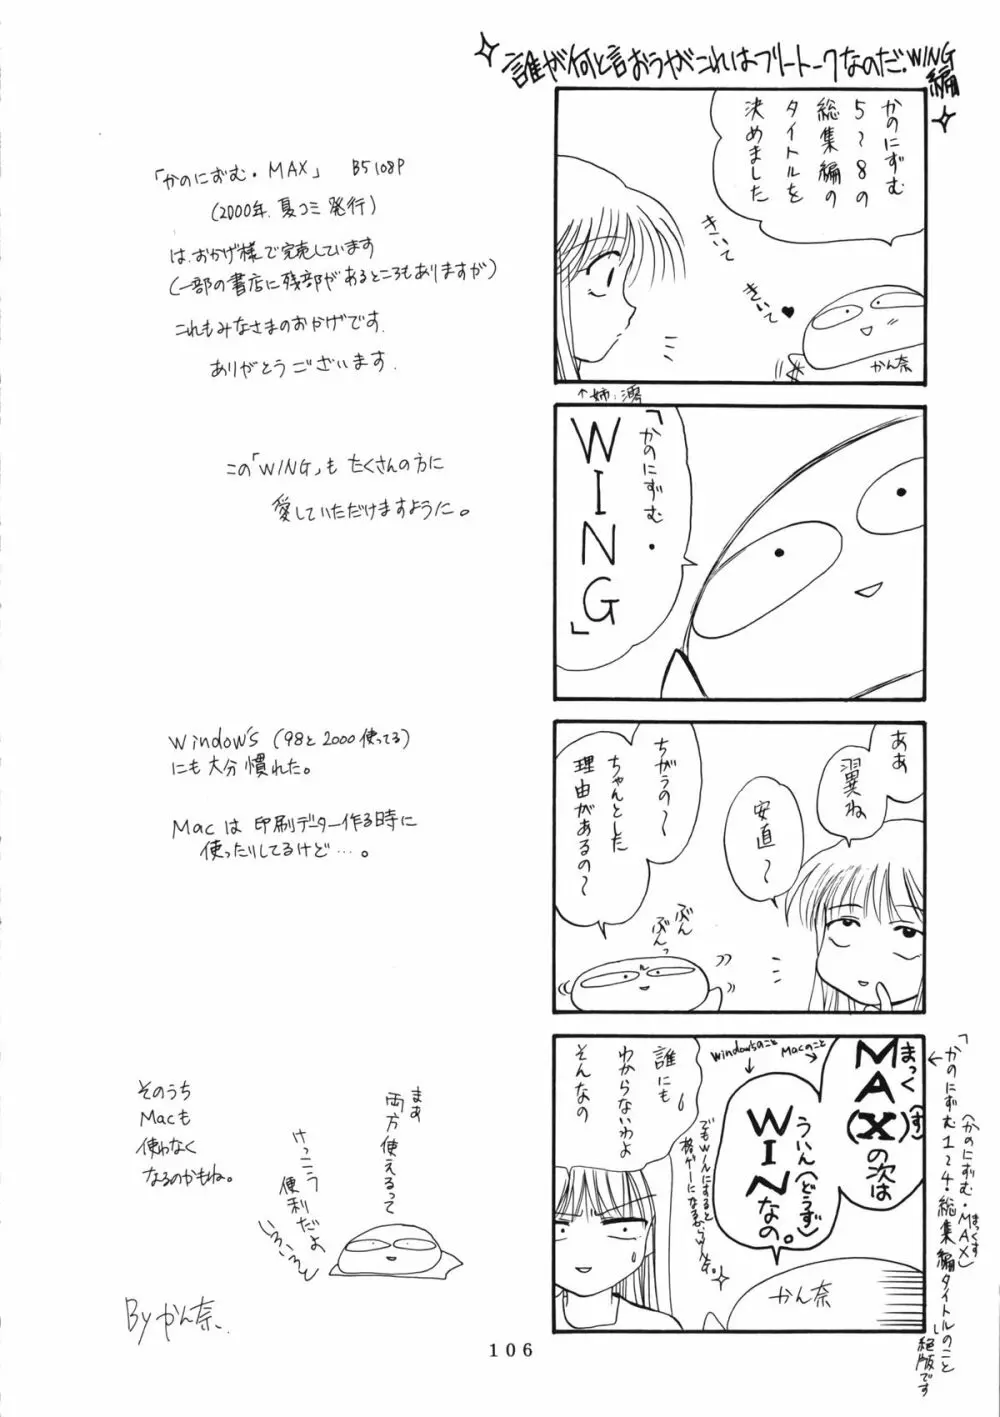 誰が何と言おうがこれはフリートークなのだ。WING編
かのにずむ
5〜8の
総集編の
タイトルを
決めました
きいて
きいて♥
かん奈
↑姉:澪
「かのにずむ・
WING」
ああ
翼ね
安直〜
ちがうの〜
ちゃんとした
理由があるの〜
ぶん
ぶんっ
まっく(す)
MA(X)の次は
Macのこと
ういん(どうず)
WINなの。
Windowsのこと
誰にも
わからないわよ
そんなの
でもWinにすると
格ゲーになるから
かん奈
「かのにずむ1〜4・総集編タイトルのこと
(かのにずむ・MAX)
まっくす
絶版です
「かのにずむ・MAX」 B5 108P
(2000年、夏コミ発行)
は、おかげ様で完売しています
(一部の書店に残部があるところもありますが)
これもみなさまのおかげです。
ありがとうございます。
この「WING」も たくさんの方に
愛していただけますように。
Window's (98と2000使ってる)
にも大分慣れた。
Macは 印刷データー作る時に
使ったりしてるけど…。
そのうち
Macも
使わなく
なるのかもね。
まあ
両方使えるって
けっこう
便利だよ
いろいろと
Byかん奈
106